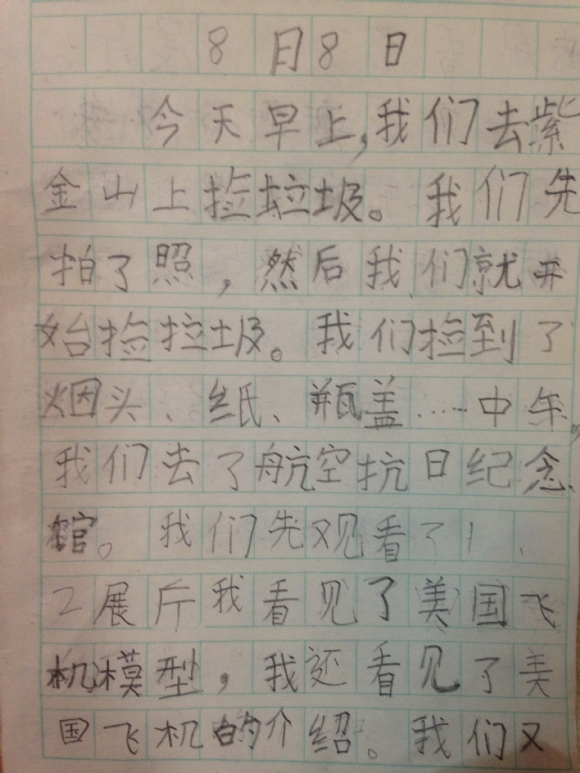 8月8日
今天早上,我们去紫
金山上捡垃圾。我们先
拍了照,然后我们就开
始捡垃圾。我们捡到了
烟头、纸、瓶盖……中午,
我们去了航空抗日纪念
馆。我们先观看了1、
2展斤我看见了美国飞
机模型,我还看见了美
国飞机的介绍。我们又